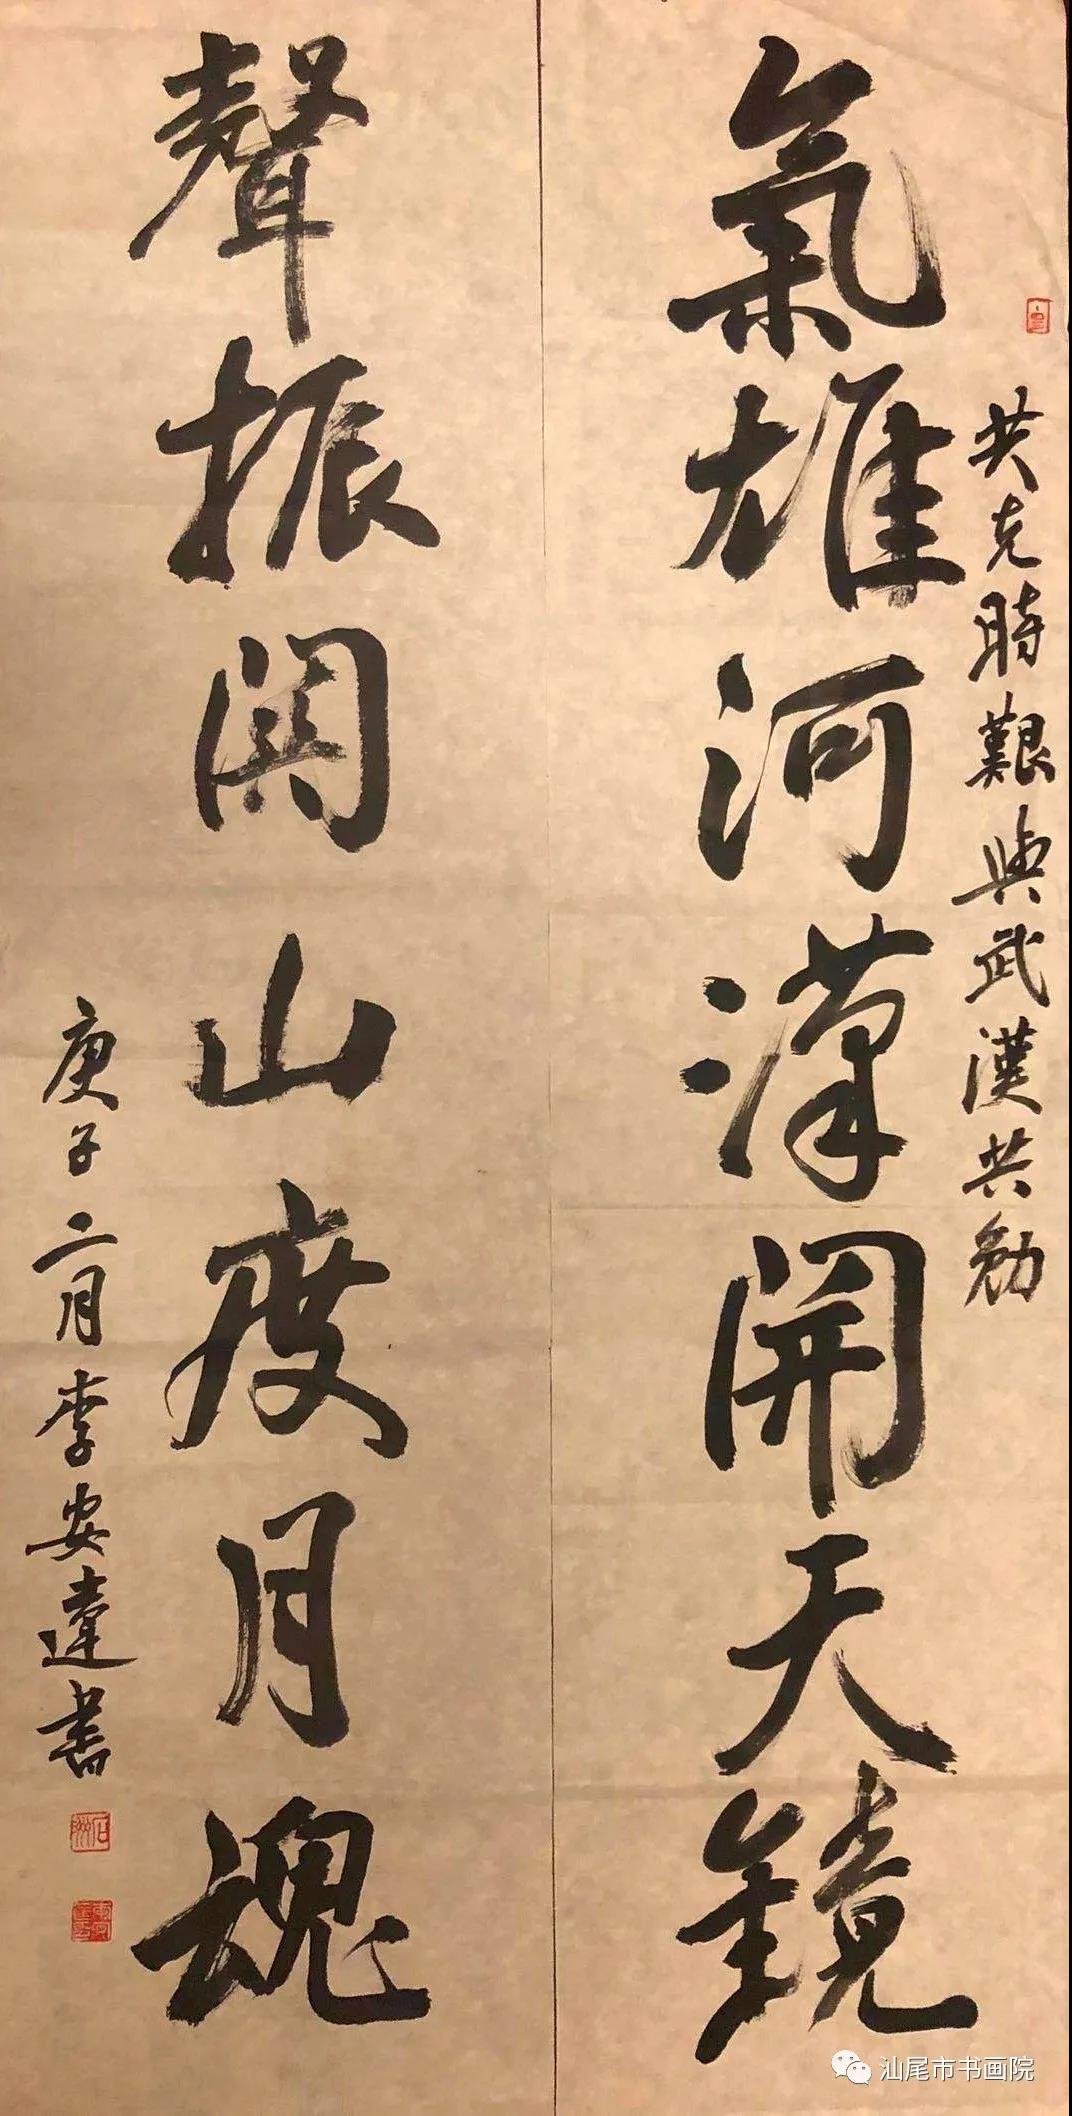 共克時艱與武漢共勉
氣雄河漢開天鏡
聲振関山度月魂
庚子二月李安達書
汕尾市书画院